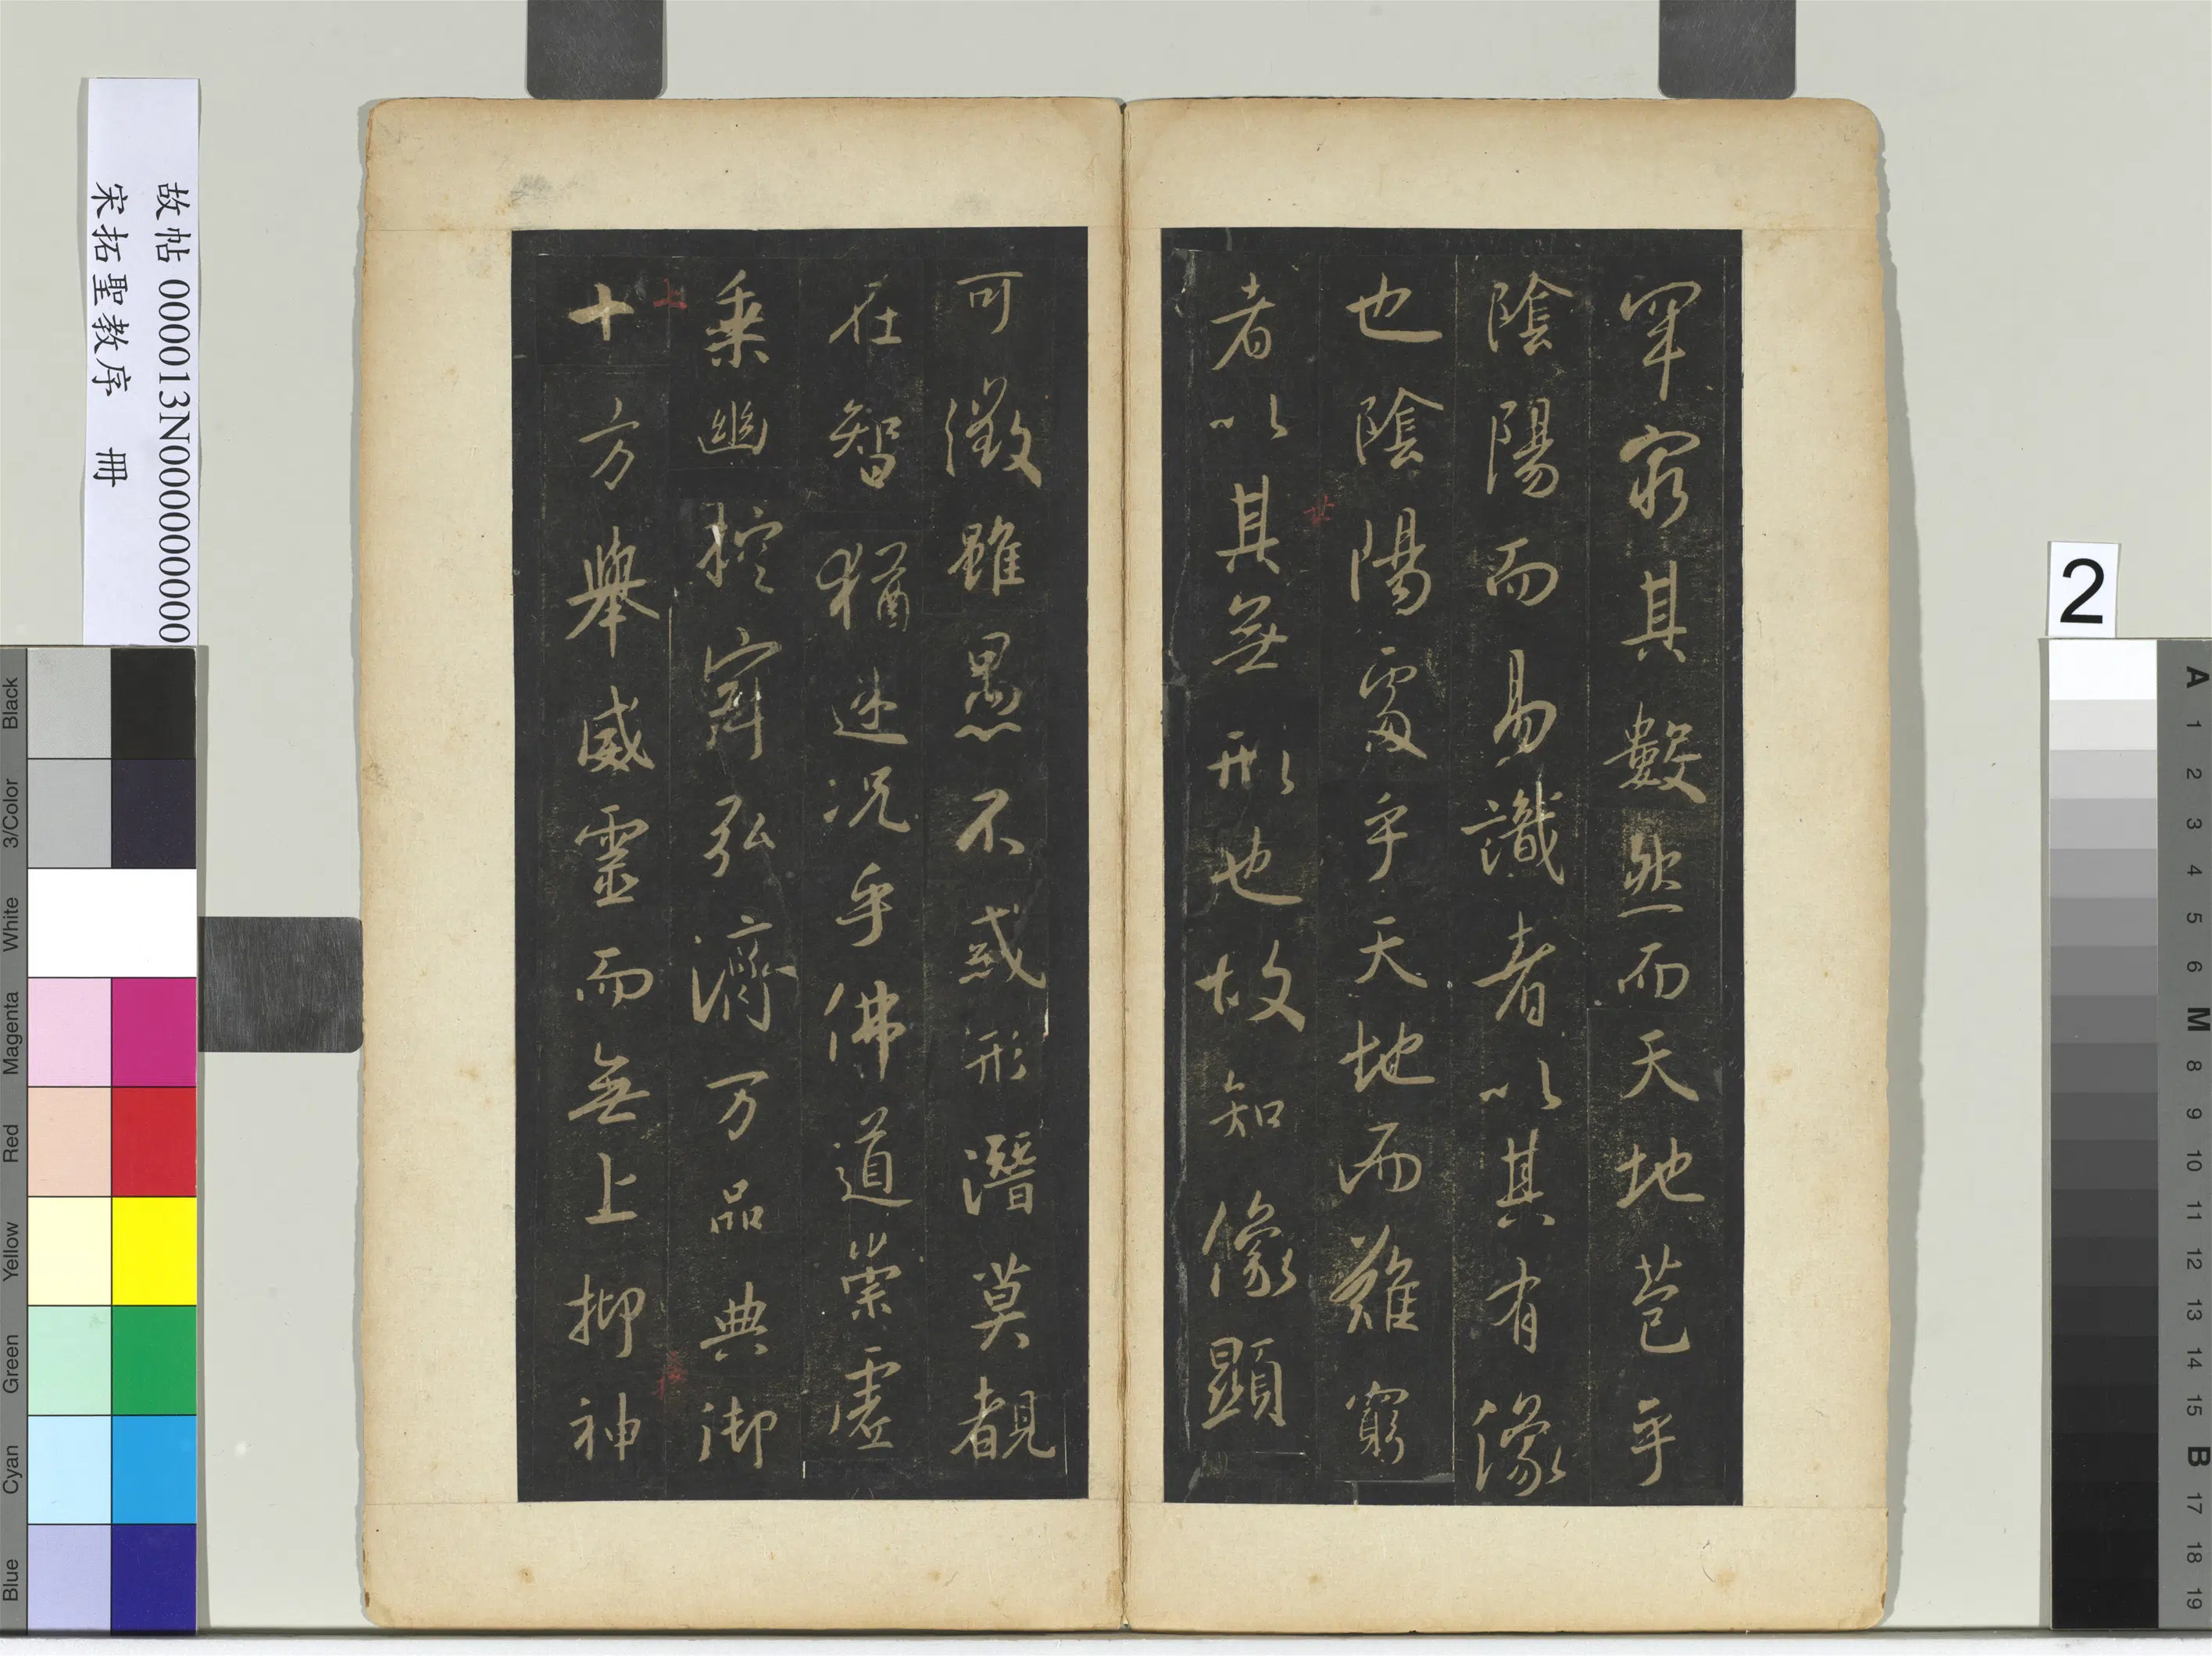 罕窮其數然而天地苞乎
陰陽而易識者以其有像
也陰陽處乎天地而難窮
者以其無形也故知像顯
可徵雖愚不惑形潛莫覩
在智猶迷況乎佛道崇虛
乘幽控寂弘濟万品典御
十方舉威靈而無上抑神
故帖 000013N000000000
宋拓聖教序 冊
2
Black
3/Color
White
Magenta
Red
Yellow
Green
Cyan
Blue
A 1 2 3 4 5 6 M 8 9 10 11 12 13 14 15 B 17 18 19